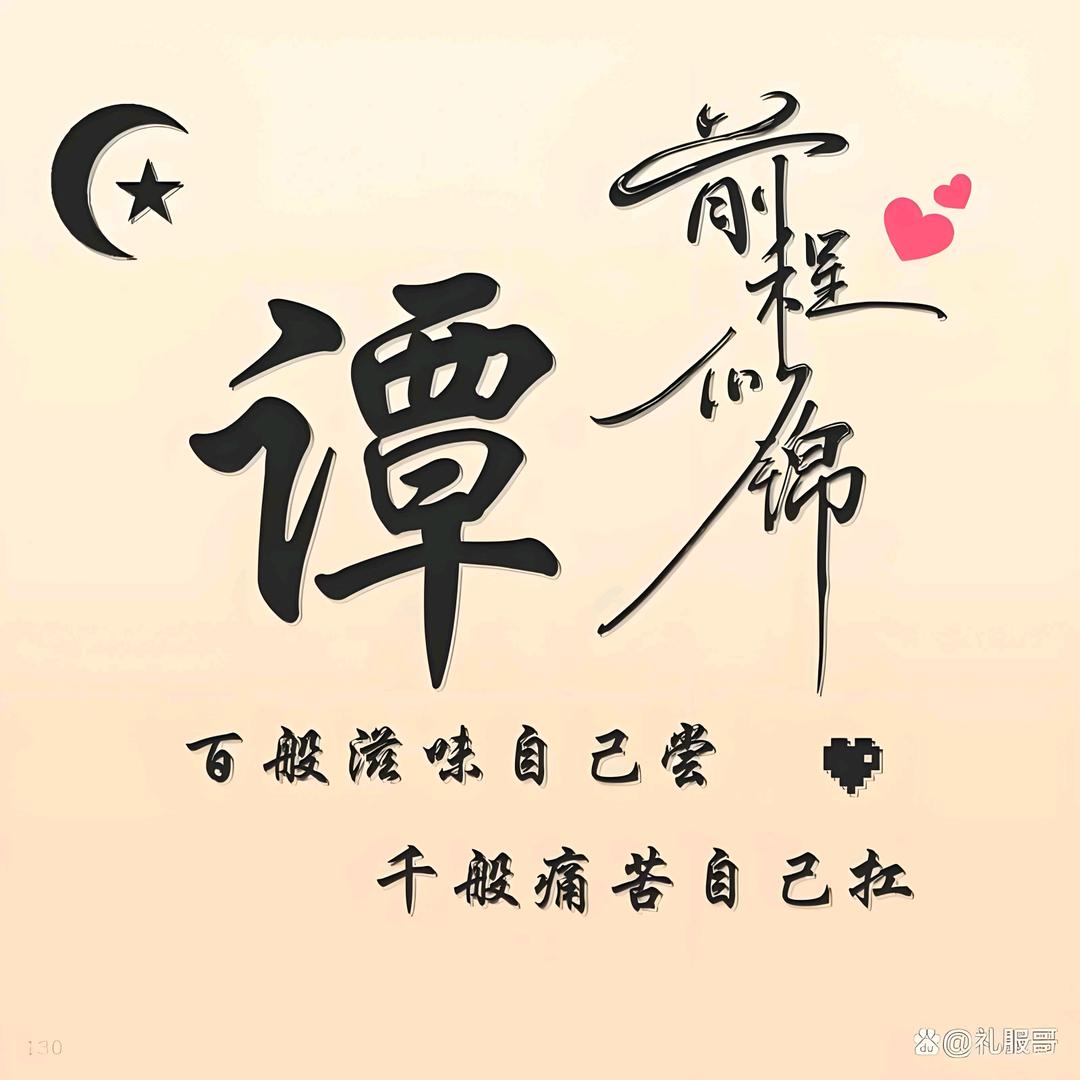 谭
前程似锦
百般滋味自己尝
千般痛苦自己扛
130
du@礼服哥